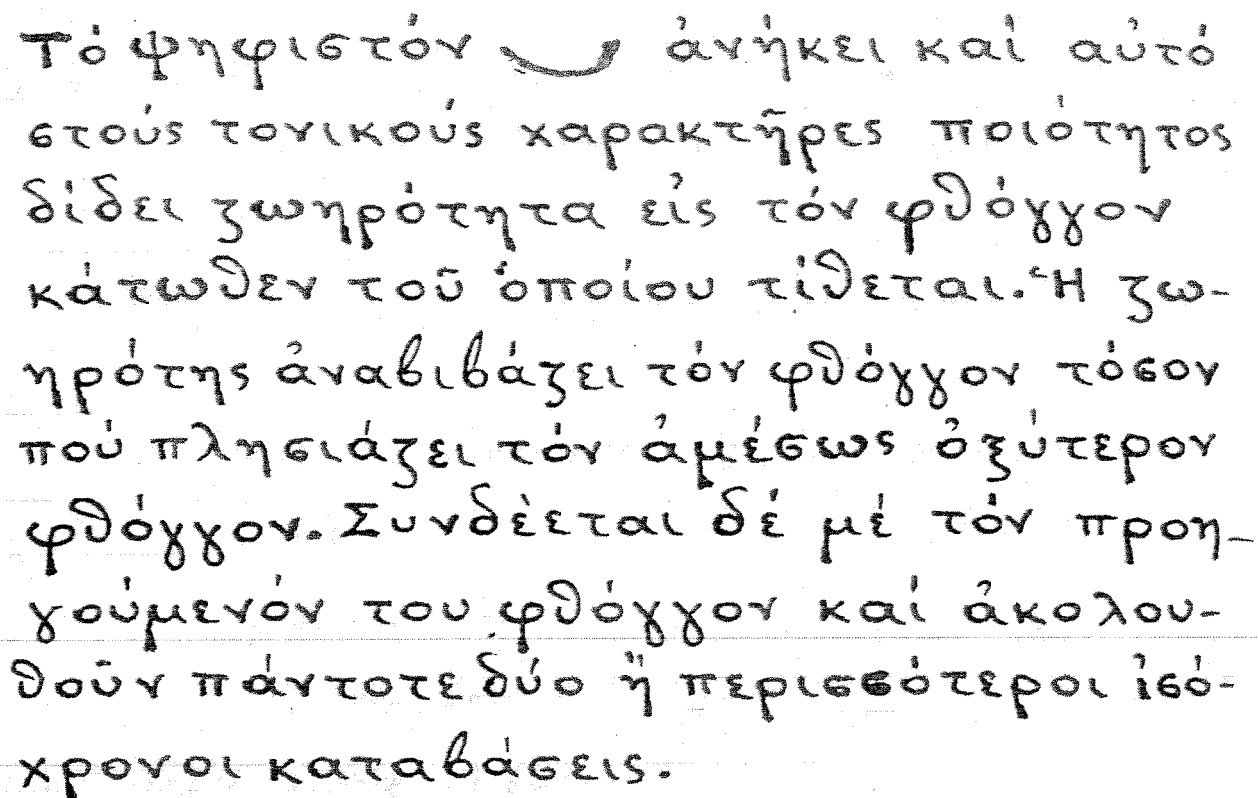 Τό ψηφιστόν ἀνήκει καί αὐτό
στούς τονικούς χαρακτῆρες ποιότητος
δίδει ζωηρότητα εἰς τόν φθόγγον
κάτωθεν τοῦ ὁποίου τίθεται. Ἡ ζω-
ηρότης ἀναβιβάζει τόν φθόγγον τόσον
πού πλησιάζει τόν ἀμέσως ὀξύτερον
φθόγγον. Συνδέεται δέ μέ τόν προη-
γούμενόν του φθόγγον καί ἀκολου-
θοῦν πάντοτε δύο ἤ περισσότεροι ἰσό-
χρονοι καταβάσεις.